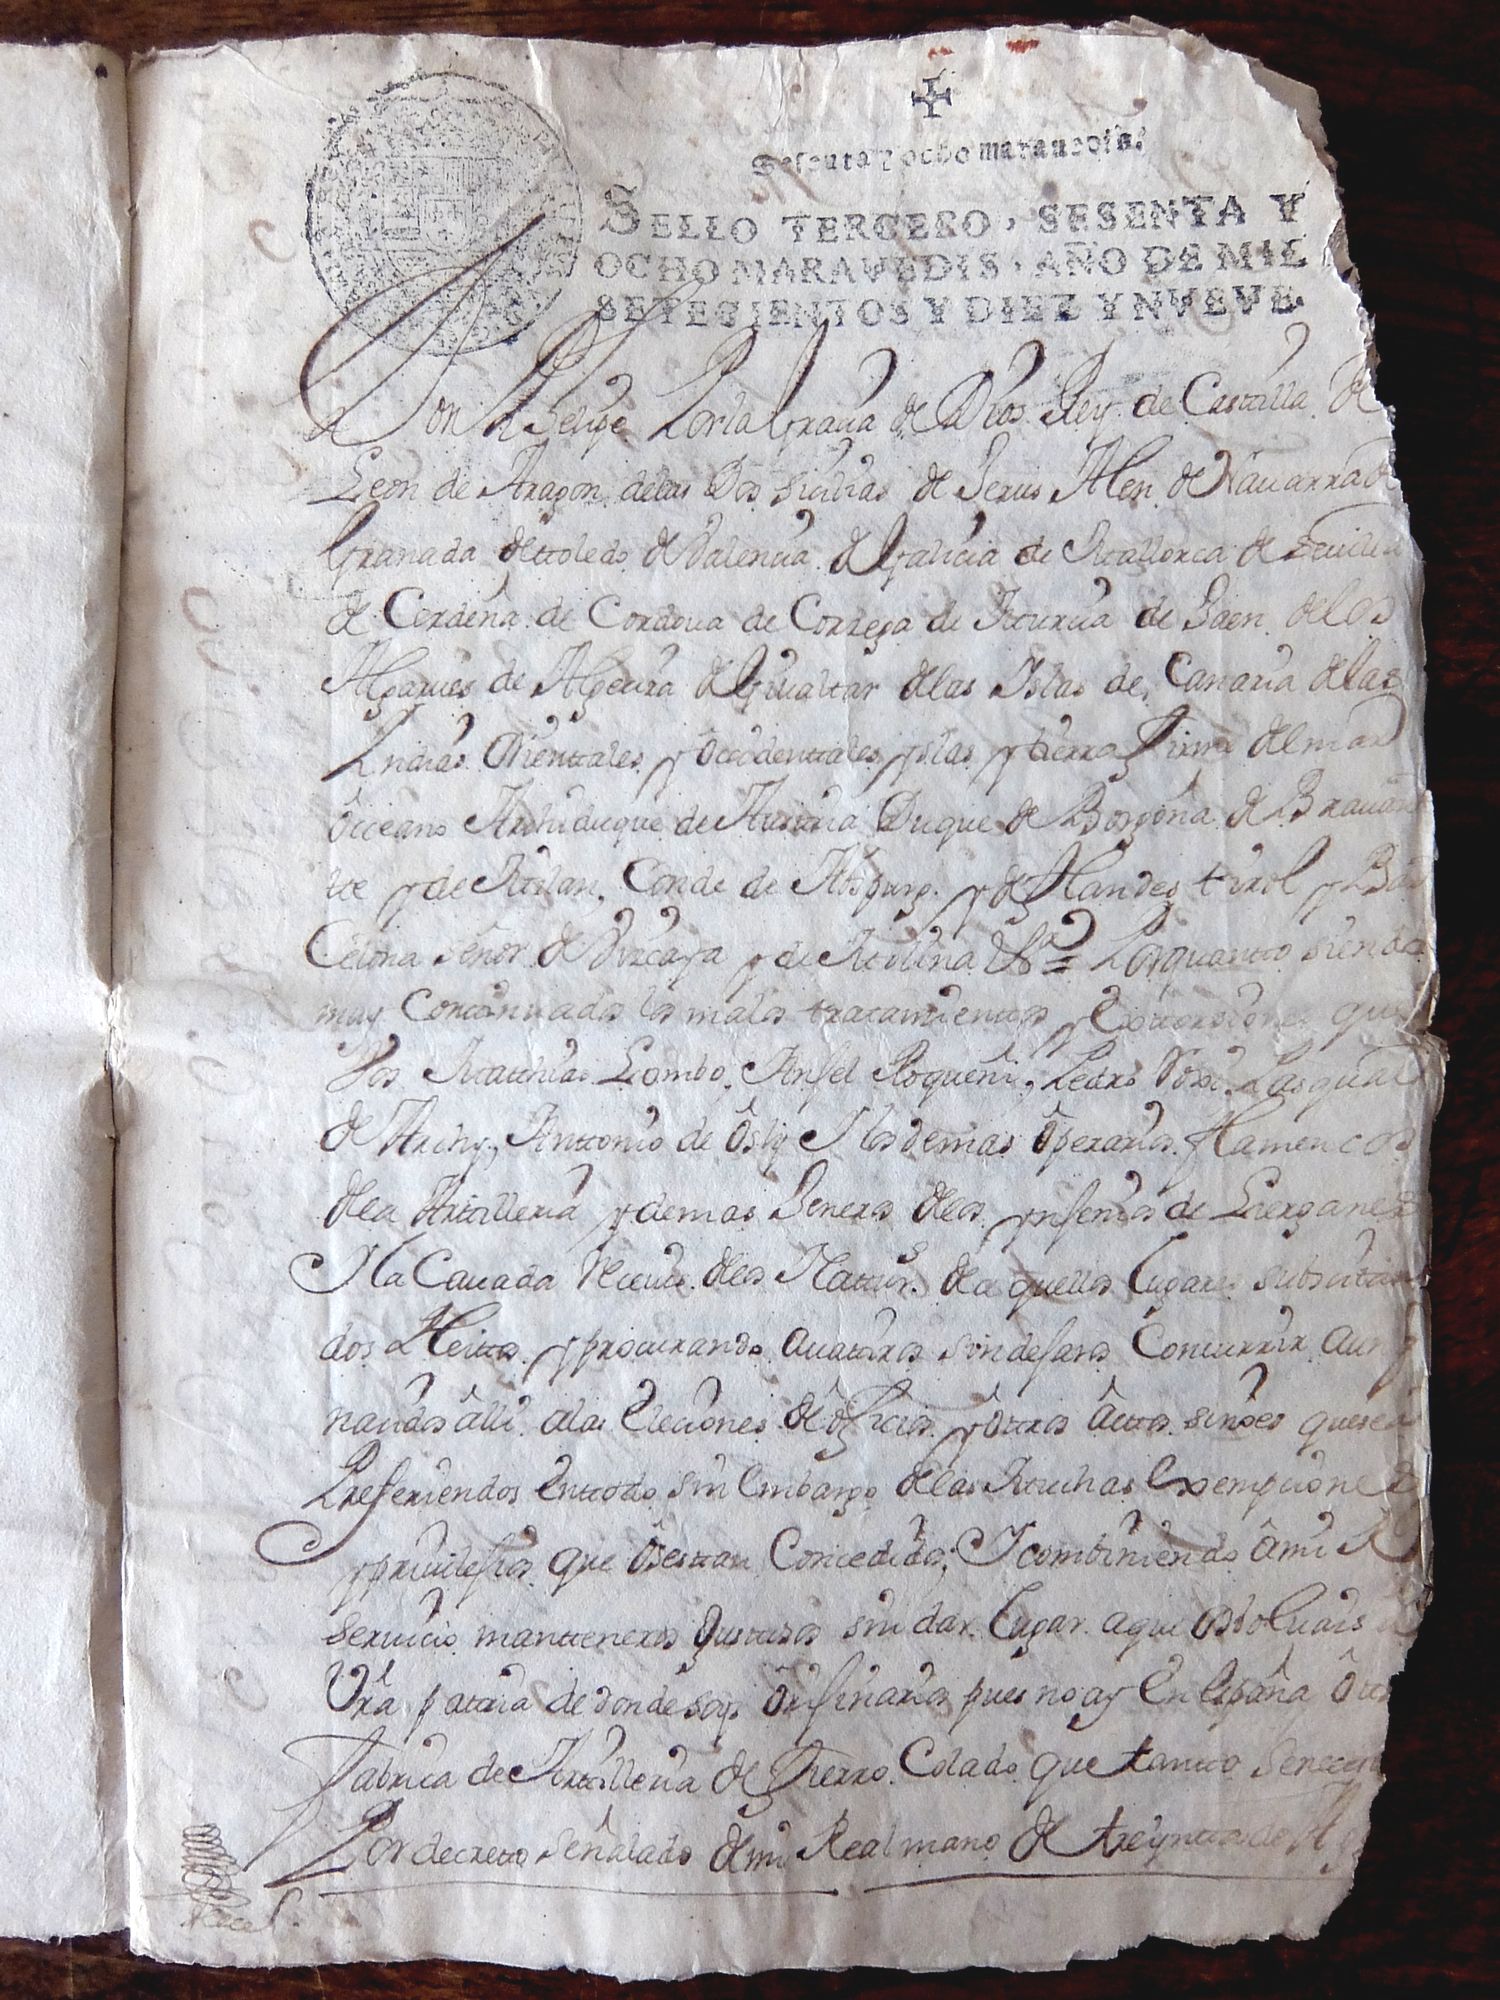 Sesenta y ocho marauedis.
SELLO TERCERO, SESENTA Y
OCHO MARAVEDIS, AÑO DE MIL
SETECIENTOS Y DIEZ Y NVEVE.
Don Phelipe Por la Gracia de Dios Rey de Castilla de
Leon de Aragon delas Dos sicilias de Jerus Alen de Nauarra de
Granada de ttoledo de Valencia de Galicia de Mallorca de Seuilla
de Cerdeña de Cordoua de Correga de Murcia de Jaen delos
Algarues de Algecira de Gibraltar delas Islas de Canaria delas
Indias Orienttales y Occidenttales yslas y tierra firme del mar
Occeano Archiduque de Austria Duque de Borgoña de Brauan
tte y de Milan, Conde de Abspurg y de Flandes tirol y Bar
Celona señor de Vizcaya y de Molina &ª = Por quantto siendo
muy Conttinuados los malos tratamienttos y extorsiones que
Vos Matthias Lombo, Ansel Roqueñi, Pedro Pasqual
de Archy, Antonio de Osly Y los demas Operarios flamencos
dela Artilleria y demas Generos delos ynsenios de Lierganes
Y la Cauada Reciuis delos Natturs de aquellos lugares
dos Pleittos y procurando auattiros sin desaros Concurrir
naudos alli alas elecciones de ofizios y ottros Acttos
Prefiriendos en ttodo sin embargo delas Muchas exempciones
y priuilesios que os esttan Concedidos; Y combiniendo a mi Rl
seruicio mantteneros Gusttosos sin dar lugar a que os boluais a
Vrã pattria de donde soys orisinarios pues no ay en españa ottra
fabrica de Artilleria de fierro Colado que ttantto se necesita
Por decretto señalado de mi Real mano de treyntta de